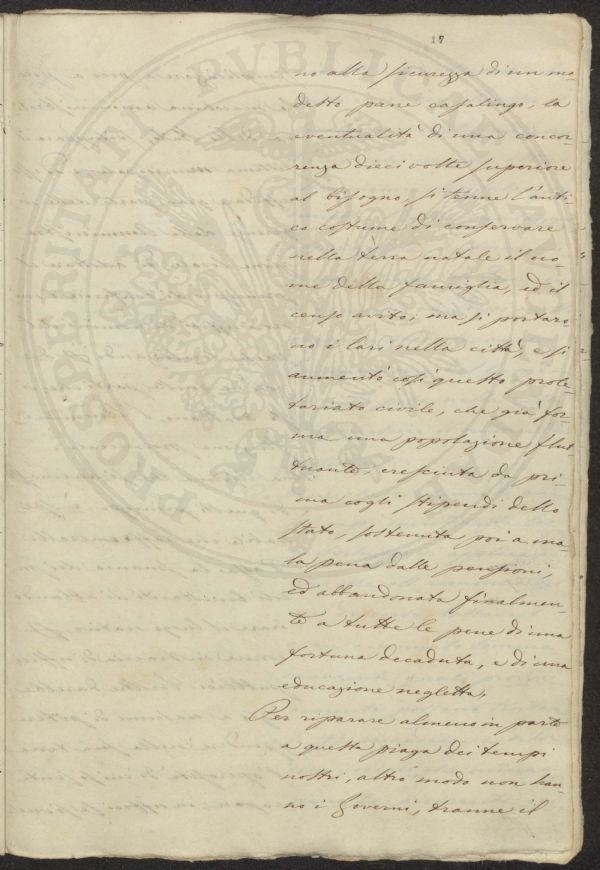 17
no alla sicurezza di un mo-
desto pane casalingo, la
eventualità di una concor-
renza dieci volte superiore
al bisogno, si tenne l'anti-
co costume di conservare
nella terra natale il no-
me della famiglia, ed il
censo avito; ma si portaro-
no i lari nella città, e si
aumentò così questo prole-
tariato civile, che già for-
ma una popolazione flut-
tuante, cresciuta da pri-
ma cogli stipendi dello
stato, sostenuta poi a ma-
la pena dalle pensioni,
ed abbandonata finalmen-
te a tutte le pene di una
fortuna decaduta, e di una
educazione negletta.
Per riparare almeno in parte
a questa piaga dei tempi
nostri, altro modo non han-
no i Governi, tranne il
PROSPERITATI PUBLICAE